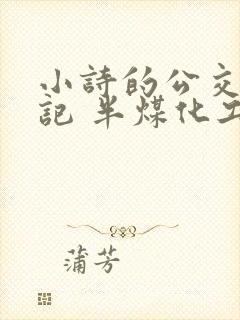 小詩的公交
記 半煤化工
蒲芳